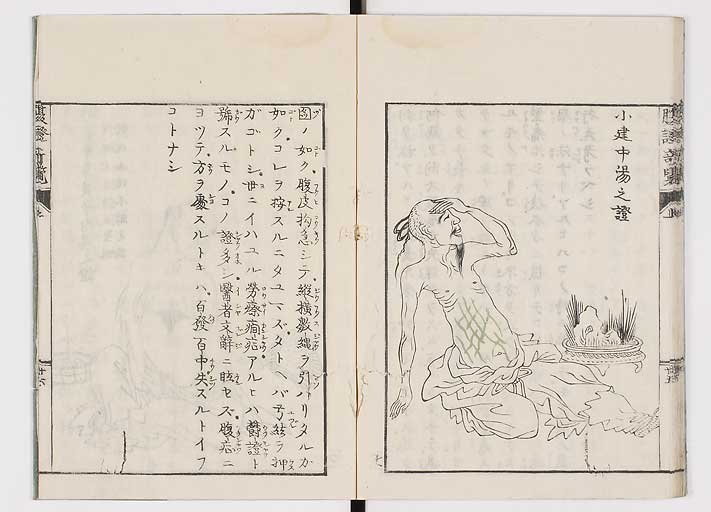 小建中湯之證
圖ノ如ク腹皮拘急シテ縱横數繩ヲ引ハリタルカ
如クコレヲ按スルニタユマズタトヘバ弓絃ヲ押
ガゴトシ世ニイハユル勞療癎症アルヒハ欝證ト
號スルモノコノ證多シ醫者文辭ニ眩セズ腹症ニ
ヨツテ方ヲ處スルトキハ百發百中失スルトイフ
コトナシ